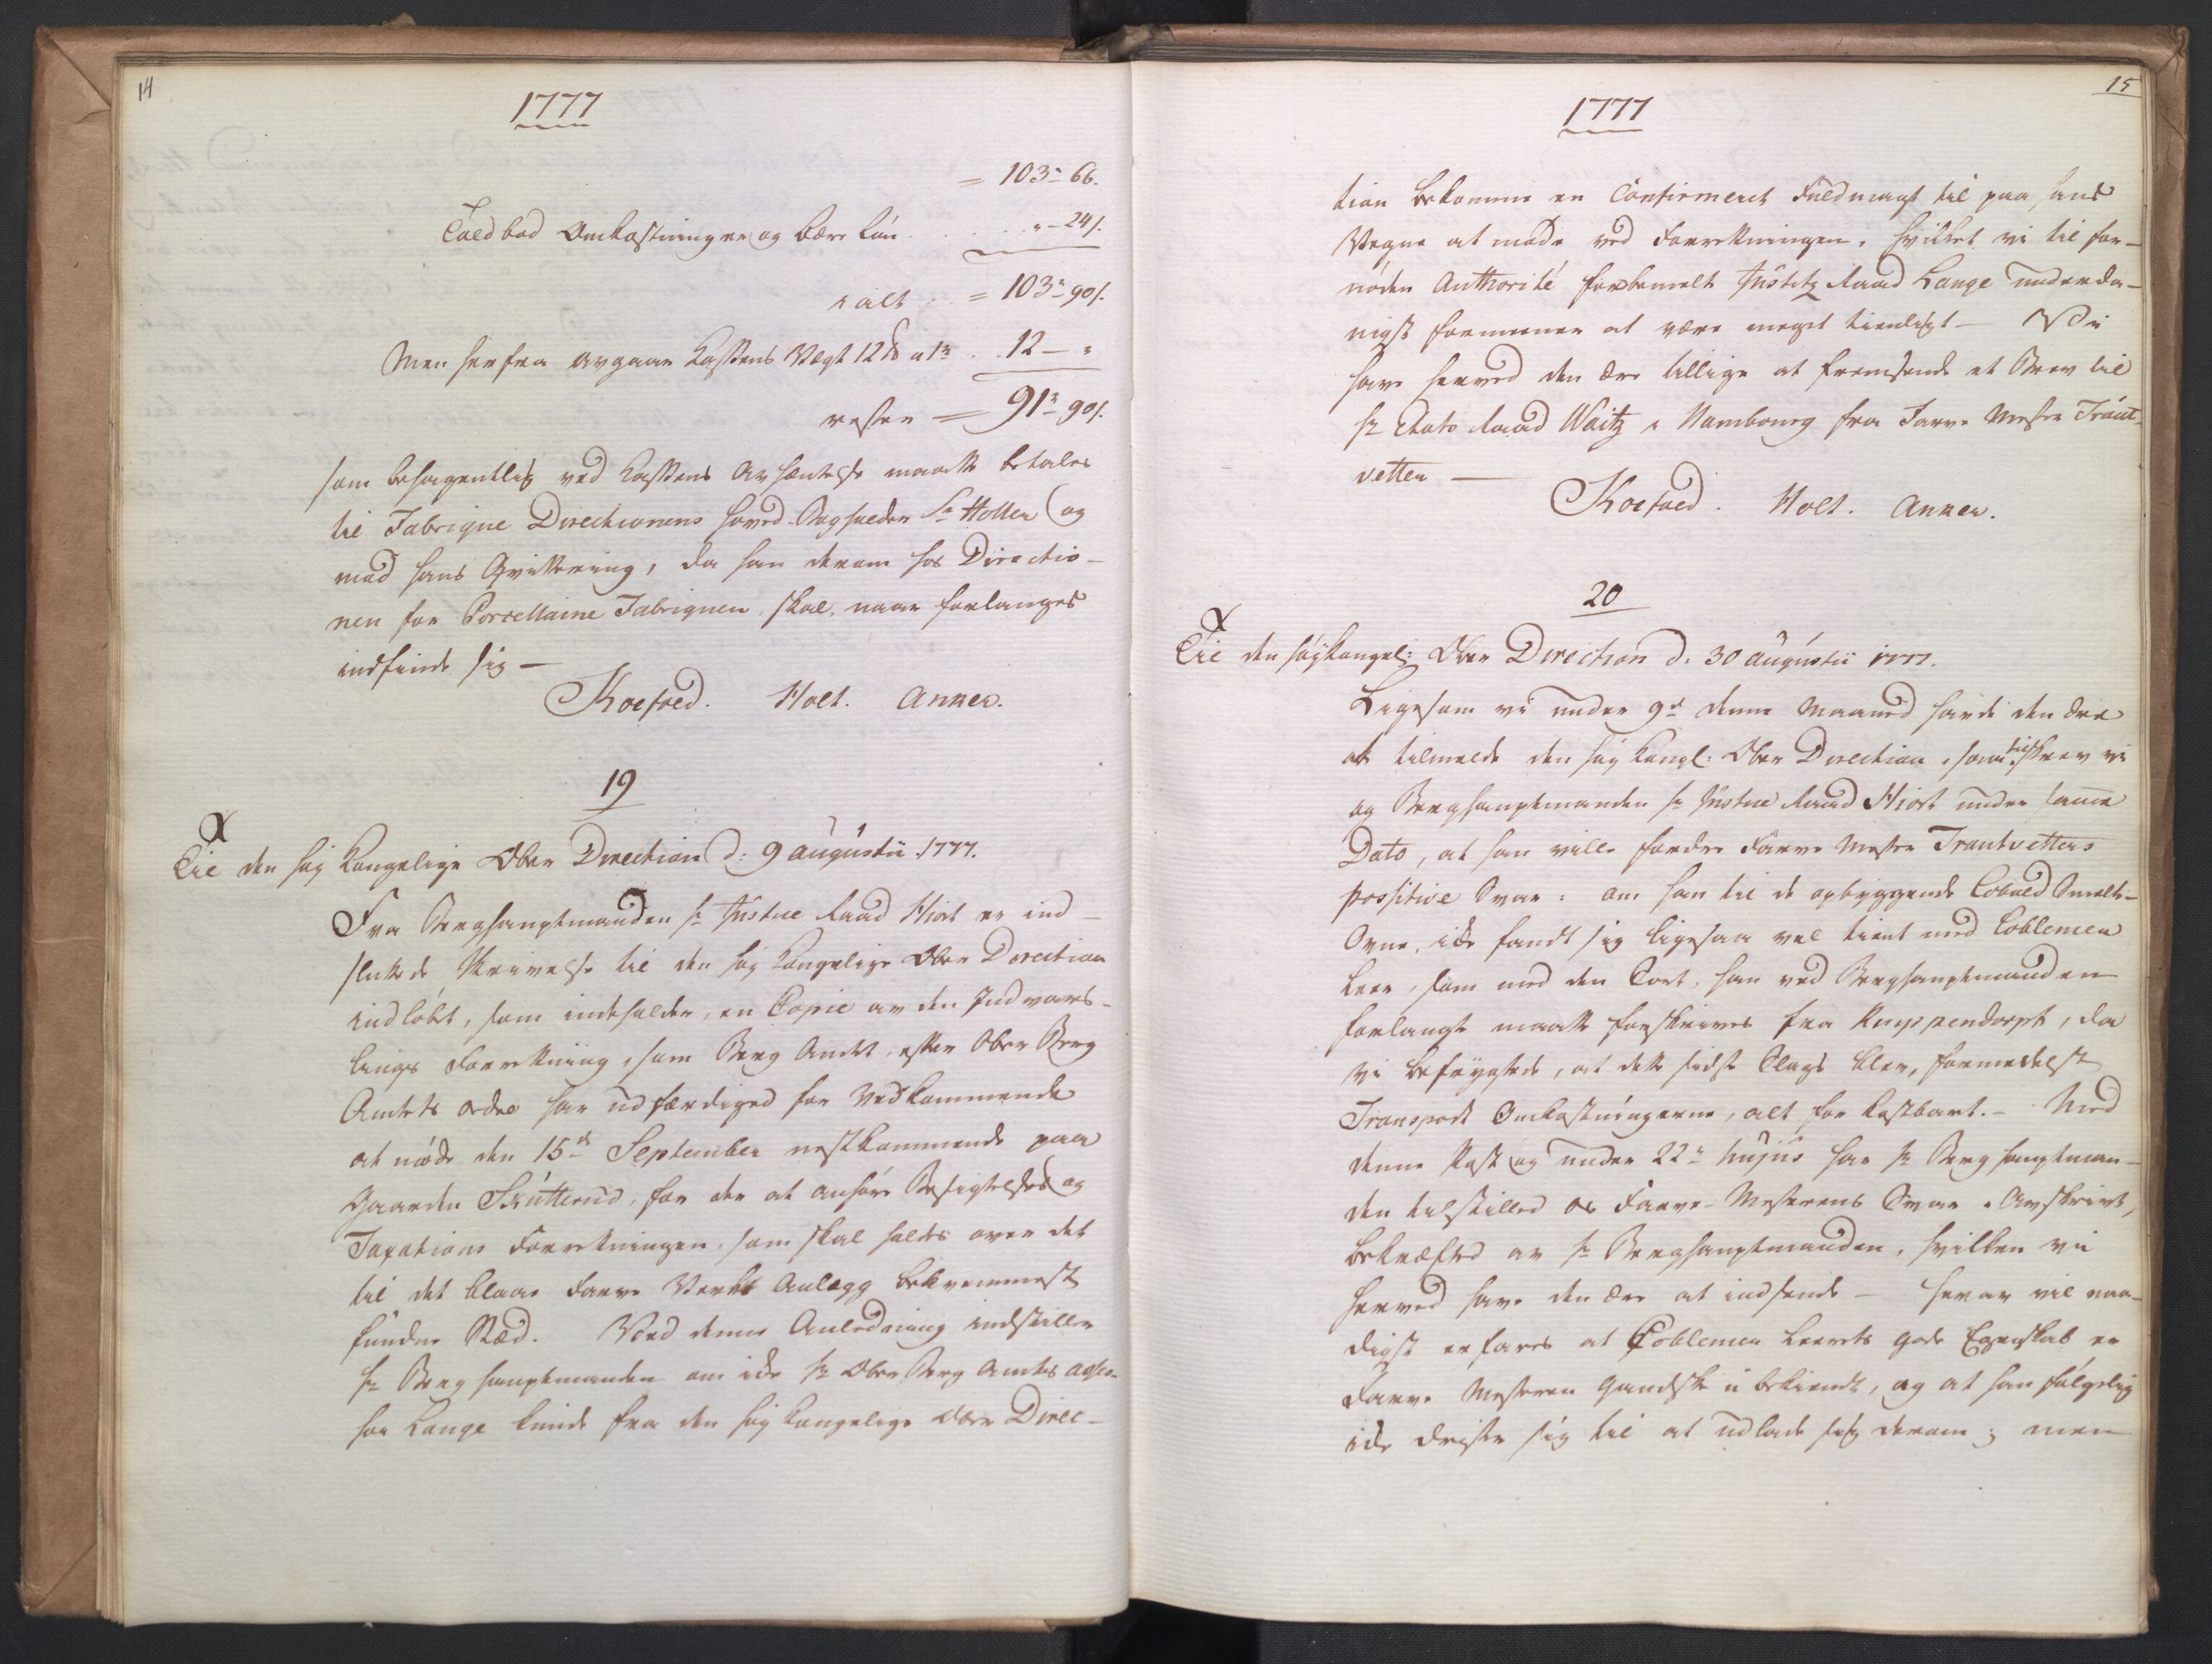 14
1777
= 103 - 66.
Toldbod Omkostninger og bære Løn . . . . " - 24 s.
i alt . = 103 - 90 s.
Men herfra avgaar Kassens Vægt 12 ℔ a 1 . . 12 - "
rester = 91 - 90 s.
som behagentlig ved Kassens Avhæntelse maatte betales
til Fabrique Directionens hoved Bogholder Sr Holler (og
mod hans Qvittering, da han derom hos Directio-
nen for Porcellaine Fabriquen, skal, naar forlanges
indfinde sig —
Koefoed. Holt. Anker.
19
Til den høy Kongelige Ober Direction d: 9 Augustii 1777.
Fra Berghauptmanden Hr Justice Raad Hiort er ind-
sluttede Skrivelse til den høy Kongelige Ober Direction
indløbt, som indeholder, en Copie av den Indvars-
lings Forretning, som Berg Amtet, efter Ober Berg
Amtets ordre har udfærdiget for Vedkommende
at møde den 15de September nestkommende paa
Gaarden Skutterud, for der at anhøre Besigtelses og
Taxations Forretningen, som skal holdes over det
til det blaae Farve Verks Anlægg bekvemmest
fundne Stæd. Ved denne Anledning indstiller
Hr Berghauptmanden om ikke Hr Ober Berg Amts Asses-
sor Lange kunde fra den høy Kongelige Ober Direc-
15
1777
tion bekomme en Confirmeret Fuldmagt til paa hans
Vegne at møde ved Forretningen, hvilket vi til for-
nøden Authorité forbemelt Justitz Raad Lange underda-
nigst formeener at være meget tienligt — Vi
have herved den Ære tillige at fremsende et Brev til
Hr Etats Raad Waitz i Hambourg fra Farve Mester Traut-
vetter —
Koefoed. Holt. Anker.
20
Til den høykongel: Ober Direction d: 30 Augustii 1777.
Ligesom vi under 9de denne Maaned havde den Ære
at tilmelde den høy Kongl: Ober Direction, saa tilskrev vi
og Berghauptmanden Hr Justice Raad Hiort under samme
Dato, at han ville fordre Farve Mester Trautvetters
possitive Svar: om han til de opbyggende Cobold Smelte-
Ovne, ikke fandt sig ligesaa vel tient med Coblemer
Leer, som med den Sort, han ved Berghauptmanden
forlangte maatte forskrives fra Kuppendorph, da
vi befrygtede, at dette sidste Slags blev, formedelst
Transport Omkostningerne, alt for kostbart. — Med
denne Post og under 22de hujus har Hr Berghauptman-
den tilstilled os Farve-Mesterens Svar i Avskrivt,
bekræfted av Hr Berghauptmanden, hvilken vi
herved have den Ære at indsende — herav vil naa-
digst erfares at Coblemer Leerets gode Egenskab er
Farve Mesteren gandske u bekiendt, og at han følgelig
ikke drister sig til at udlade sig derom; men